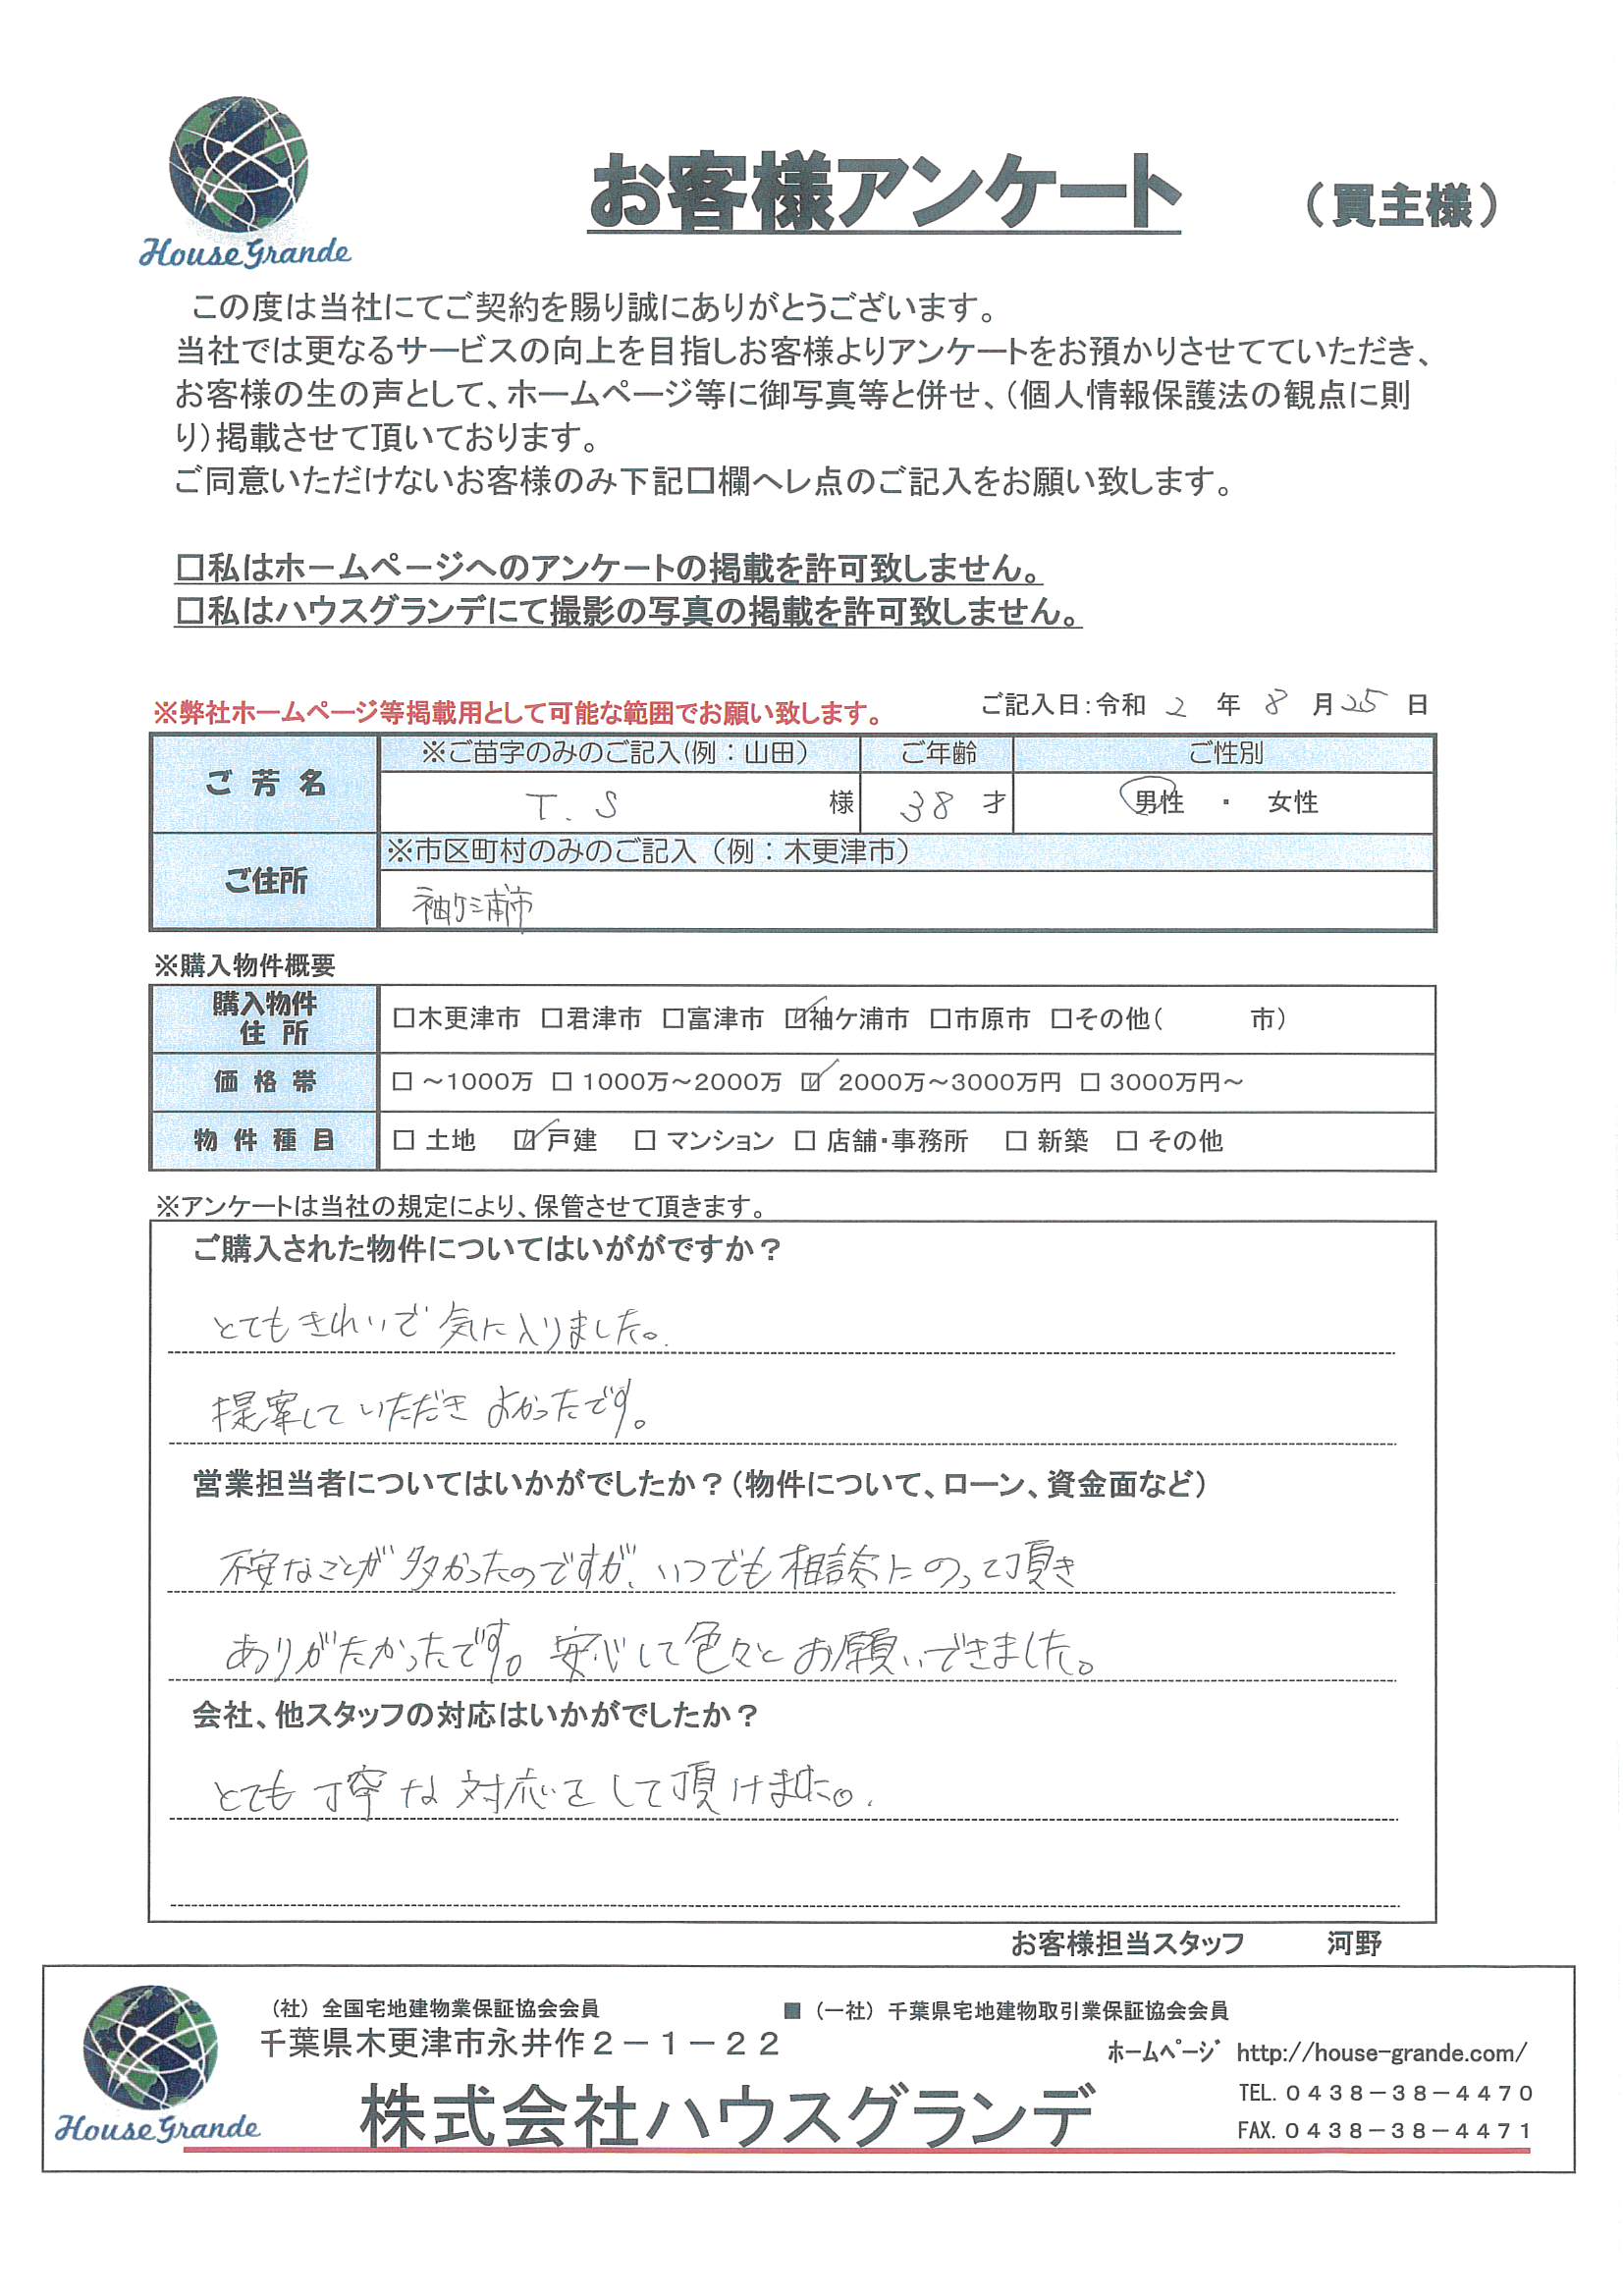 House Grande
お客様アンケート （買主様）
この度は当社にてご契約を賜り誠にありがとうございます。
当社では更なるサービスの向上を目指しお客様よりアンケートをお預かりさせてていただき、
お客様の生の声として、ホームページ等に御写真等と併せ、（個人情報保護法の観点に則
り）掲載させて頂いております。
ご同意いただけないお客様のみ下記口欄へレ点のご記入をお願い致します。
□私はホームページへのアンケートの掲載を許可致しません。
□私はハウスグランデにて撮影の写真の掲載を許可致しません。
※弊社ホームページ等掲載用として可能な範囲でお願い致します。 ご記入日：令和 2 年 8 月 25 日
ご芳名 ※ご苗字のみのご記入(例：山田） ご年齢 ご性別
T.S 様 38 才 男性 ・ 女性
ご住所 ※市区町村のみのご記入（例：木更津市）
袖ケ浦市
※購入物件概要
購入物件
住所 □木更津市 □君津市 □富津市 ☑袖ケ浦市 □市原市 □その他（ 市）
価格帯 □ ～1000万 □ 1000万～2000万 ☑ 2000万～3000万円 □ 3000万円～
物件種目 □ 土地 ☑ 戸建 □ マンション □ 店舗・事務所 □ 新築 □ その他
※アンケートは当社の規定により、保管させて頂きます。
ご購入された物件についてはいががですか？
とてもきれいで気に入りました。
提案していただきよかったです。
営業担当者についてはいかがでしたか？（物件について、ローン、資金面など）
不安なことが多かったのですが、いつでも相談にのって頂き
ありがたかったです。安心して色々とお願いできました。
会社、他スタッフの対応はいかがでしたか？
とても丁寧な対応をして頂けました。
お客様担当スタッフ 河野
（社）全国宅地建物業保証協会会員 ■（一社）千葉県宅地建物取引業保証協会会員
千葉県木更津市永井作２－１－２２
ホームページ http://house-grande.com/
House Grande
株式会社ハウスグランデ
TEL.０４３８－３８－４４７０
FAX.０４３８－３８－４４７１